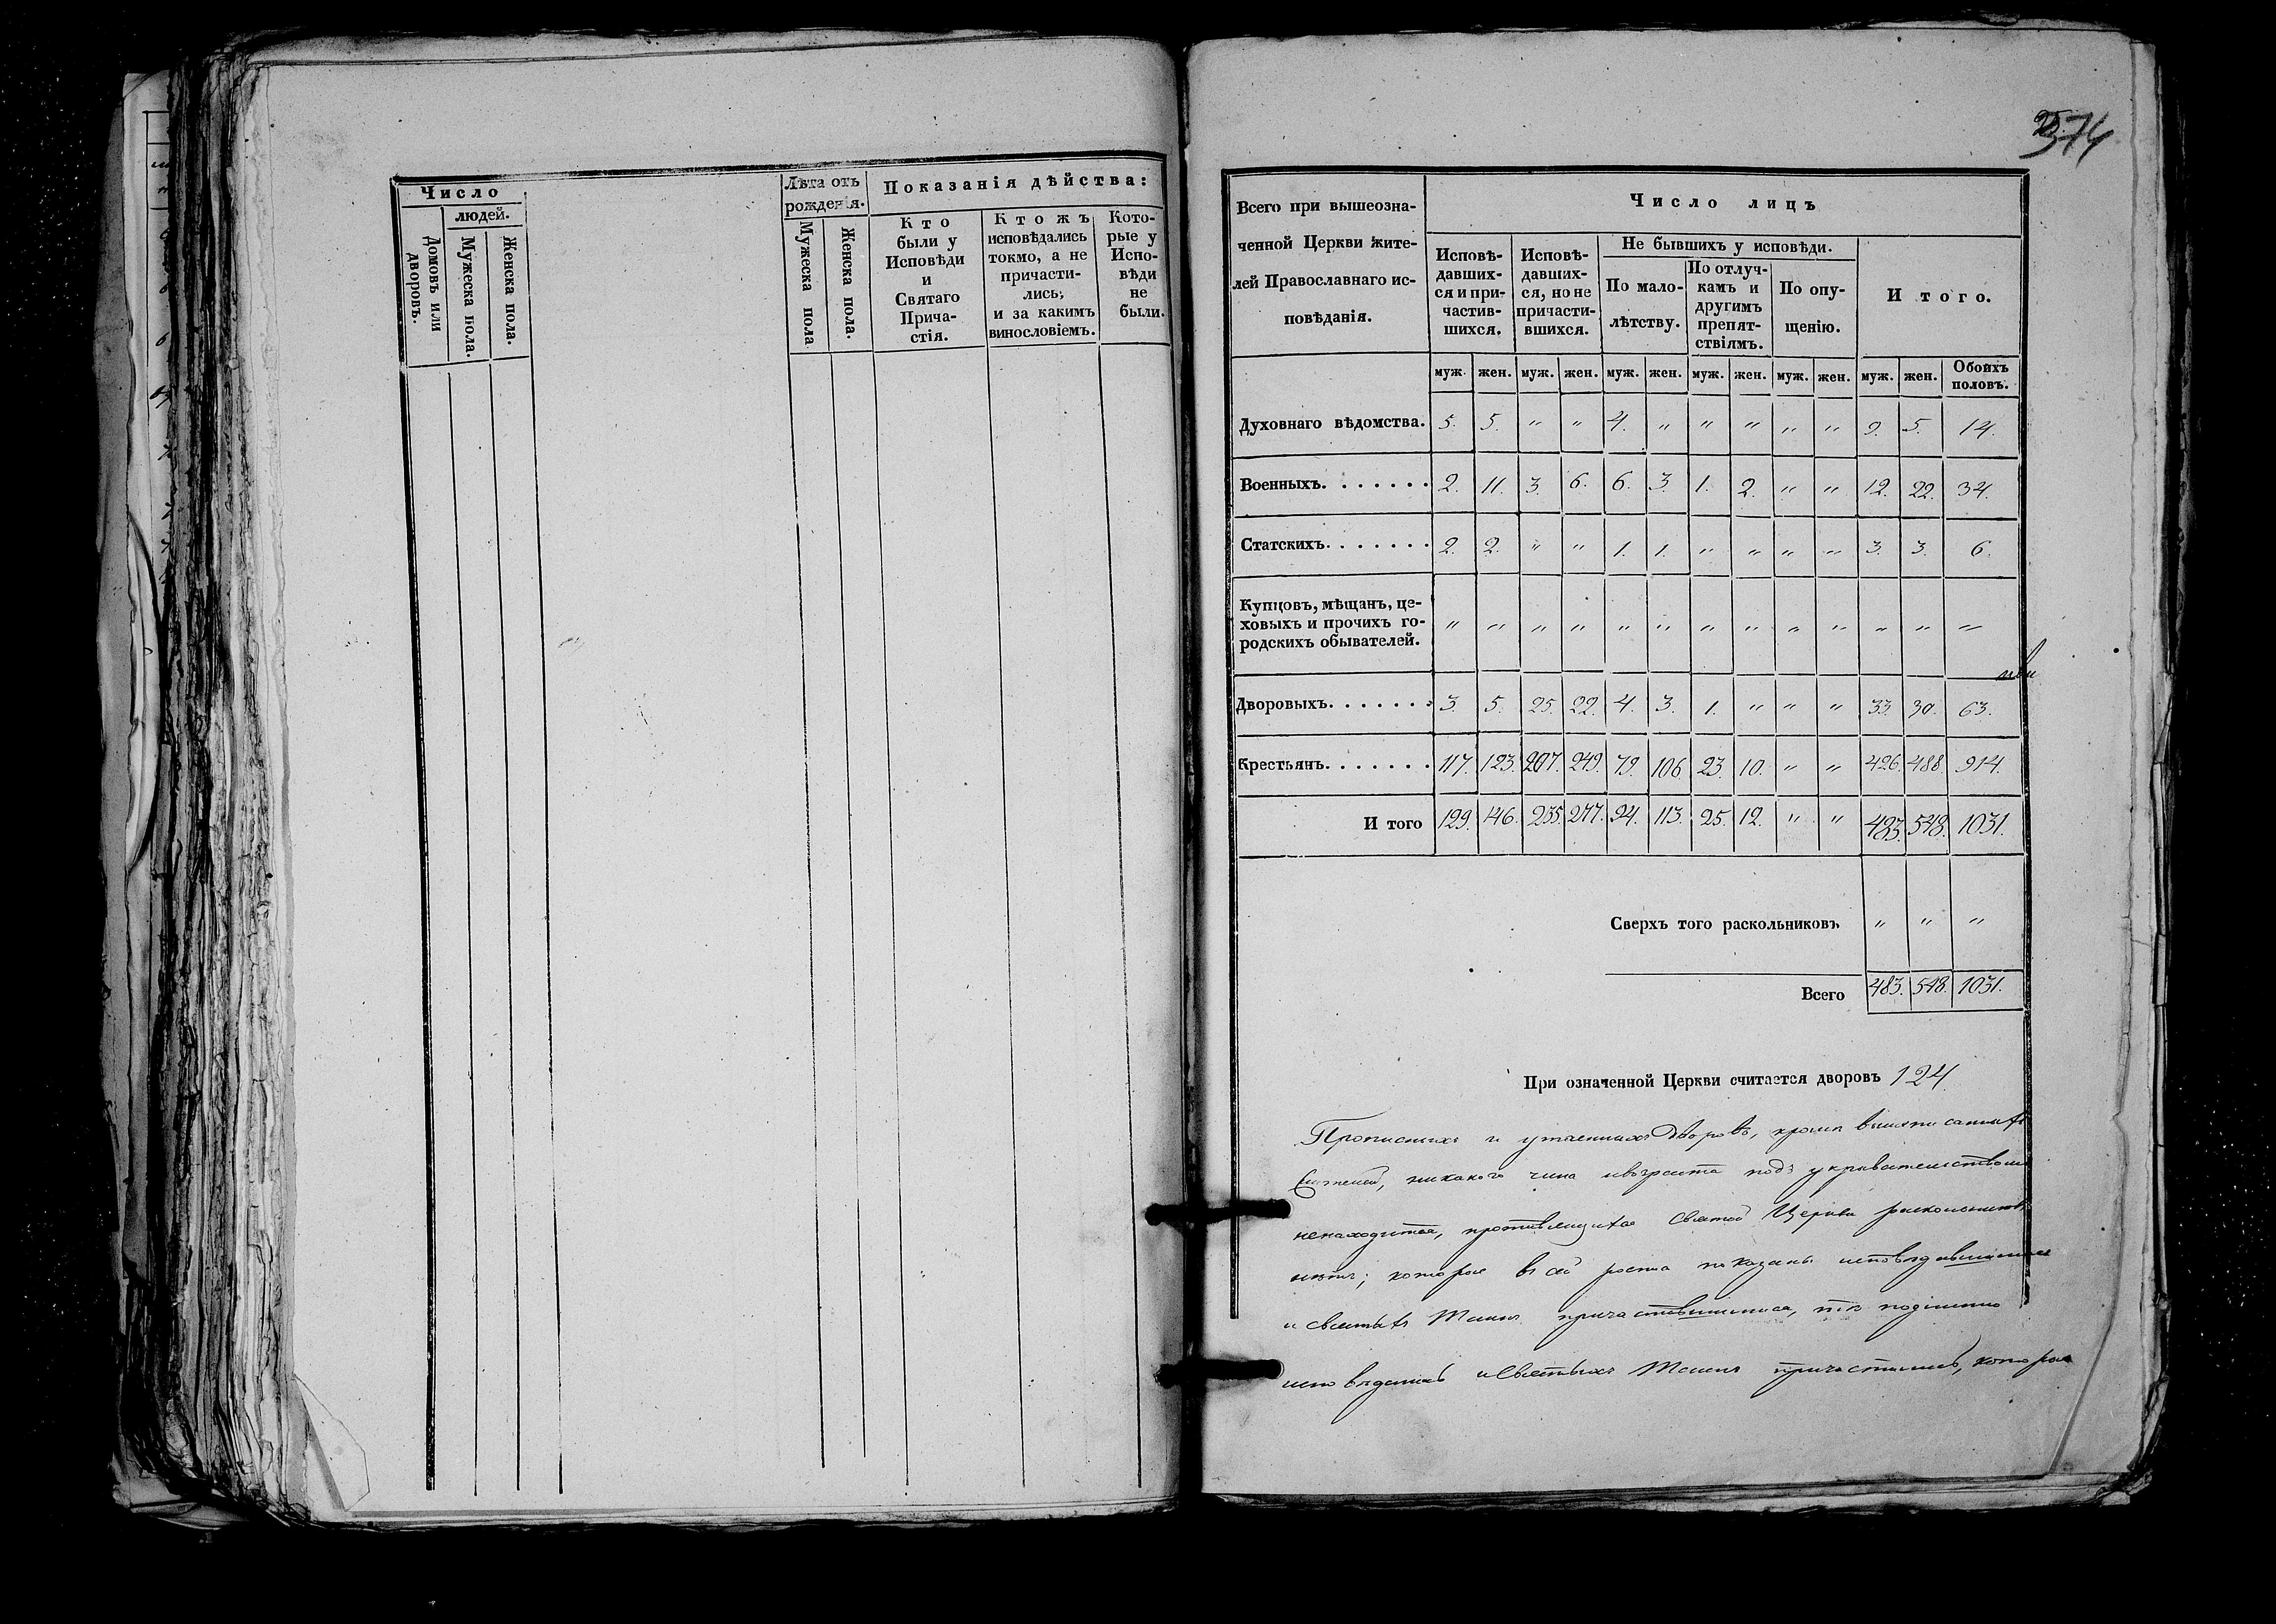 Число
людей.
Домовъ или дворовъ.
Мужеска пола.
Женска пола.
Лѣта отъ
рожденія.
Мужеска пола
Женска пола.
Показанія дѣйства:
Кто
были у
Исповѣди
и
Святаго
Прича-
стія.
Ктожъ
исповѣдались
токмо, а не
причасти-
лись,
и за какимъ
винословіемъ.
Кото-
рые у
Испо-
вѣди
не
были.
374
Всего при вышеозна-
ченной Церкви жите-
лей Православнаго ис-
повѣданія.
Число лицъ
Исповѣ-
давших-
ся и при-
частив-
шихся.
Исповѣ-
давших-
ся, но не
причасти-
вшихся.
Не бывшихъ у исповѣди.
По мало-
лѣтству.
По отлуч-
камъ и
другимъ
препят-
ствіямъ.
По опу-
щенію.
И того.
муж. жен. муж. жен. муж. жен. муж. жен. муж. жен. муж. жен. Обоихъ половъ.
Духовнаго вѣдомства. 5. 5. " " 4. " " " " " 9. 5. 14.
Военныхъ. . . . . . . 2. 11. 3. 6. 6. 3. 1. 2. " " 12. 22. 34.
Статскихъ. . . . . . . 2. 2. " " 1. 1. " " " " 3. 3. 6.
Купцовъ, мѣщанъ, це-
ховыхъ и прочихъ го-
родскихъ обывателей. " " " " " " " " " " " " "
Дворовыхъ. . . . . . . 3. 5. 25. 22. 4. 3. 1. " " " 33. 30. 63.
Крестьянъ. . . . . . . 117. 123. 207. 249. 79. 106 23. 10. " " 426. 488. 914.
И того 129. 146. 235. 277. 94. 113. 25. 12. " " 483. 548. 1031.
Сверхъ того раскольниковъ " " "
Всего 483. 548. 1031.
При означенной Церкви считается дворовъ 124
Прописныхъ и утаенныхъ дворовъ, кромѣ вышеписанныхъ
никакого чина ивозраста подъ укрывательствомъ
ненаходится, противящихся Святой Церкви раскольниковъ
нѣтъ; которые в сей росписи показаны исповѣдавшимися
и святыхъ Таинъ причастившимися, тѣ подлинно
исповѣдались иСвятыхъ Таинъ причастились, которые